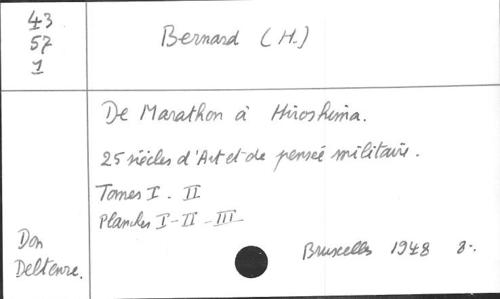 43
57
1
Bernard (H.)
De Marathon à Hiroshima.
25 siècles d'Art et de pensée militaire.
Tomes I. II
Planches I-II-III
Bruxelles 1948 8-.
Don
Deltenre.